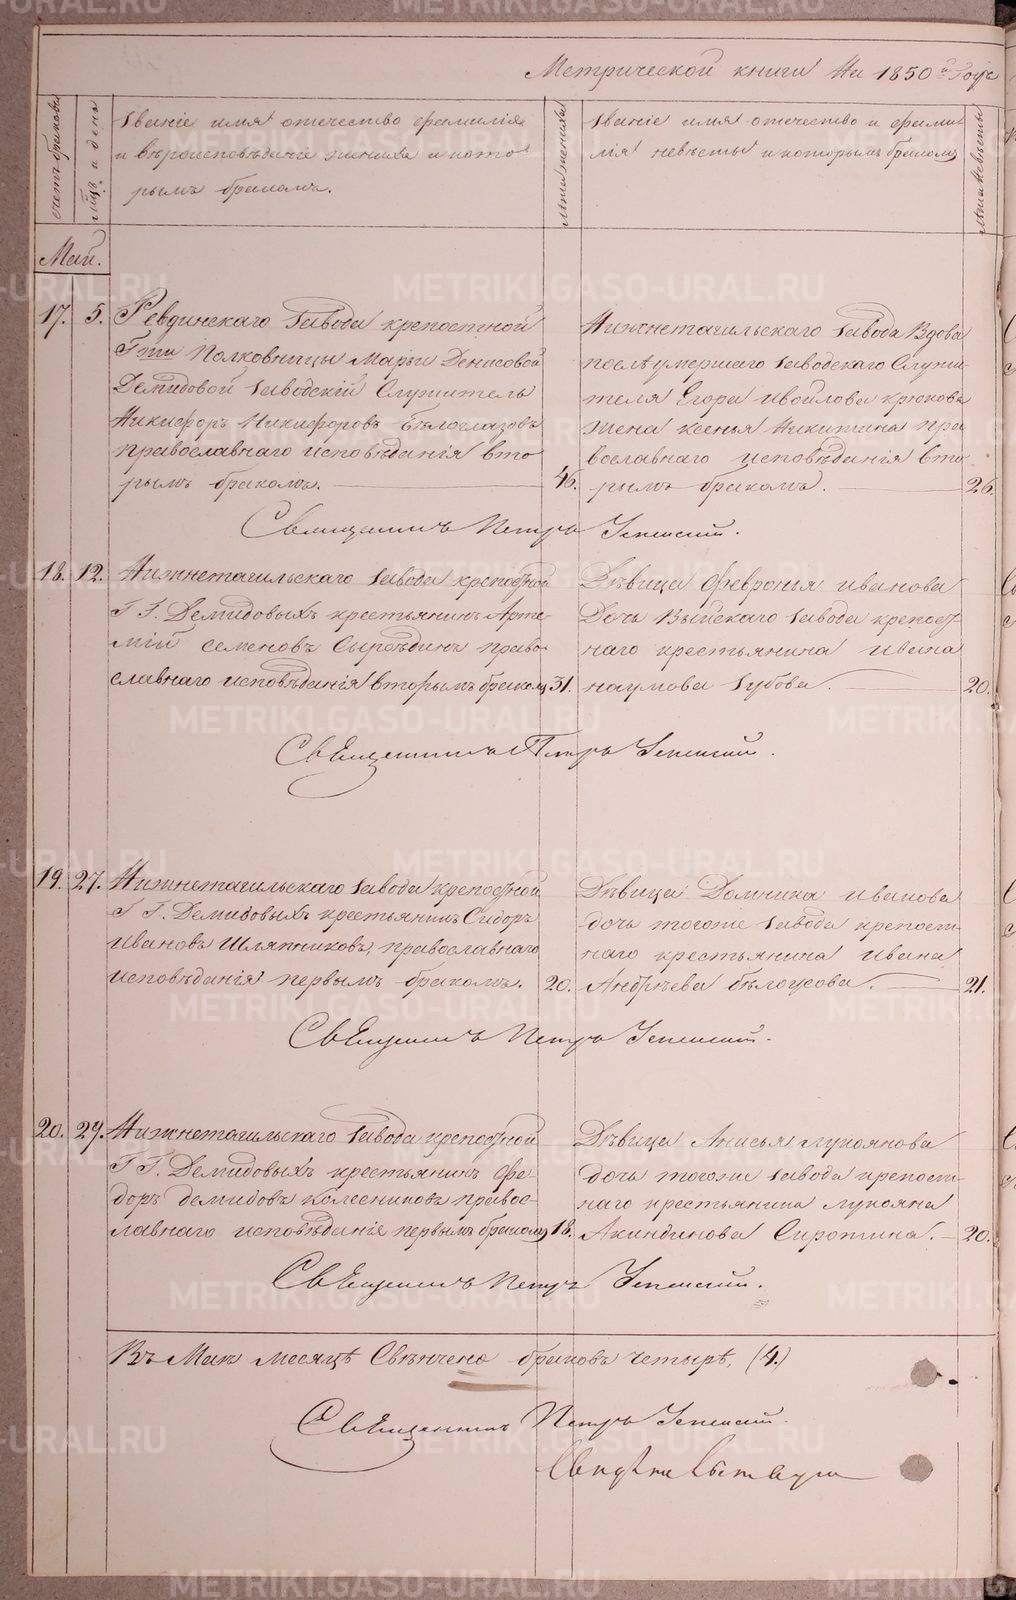 Метрической книги На 1850й Годъ
счетъ браковъ
мцъ и день
Званіе имя отечество фамилія
и вѣроисповѣданіе жениха и кото
рымъ бракомъ.
лѣта жениха
Званіе имя отечество и фами
лія невѣсты и которымъ бракомъ
лѣта невѣсты
Май.
17. 5. Ревдинскаго завода крепостной
Гжи Полковницы Марьи Денисовой
Демидовой заводскій Служитель
Никифоръ Никифоровъ Бѣлоглазовъ
православнаго исповѣданія вто
рымъ бракомъ. 46.
Нижнетагильскаго завода Вдова
послѣ умершаго заводскаго Служи-
теля Егора Ивойлова Крюкова
жена Ксенья Никитина пра
вославнаго исповѣданія вто
рымъ бракомъ. 26.
Священникъ Петръ
18. 12. Нижнетагильскаго завода крепостной
Г.Г. Демидовыхъ крестьянинъ Арте-
мій Семеновъ Сыроѣдинъ право
славнаго исповѣданія вторымъ бракомъ 31.
Дѣвица Февронья Иванова
Дочь Выйскаго завода крепост
наго крестьянина Ивана
Наумова Зубова. 20.
Священникъ Петръ
19. 27. Нижнетагильскаго завода крепостной
Г.Г. Демидовыхъ крестьянинъ Сидоръ
Ивановъ Шляпниковъ, православнаго
исповѣданія первымъ бракомъ. 20.
Дѣвица Домника Иванова
дочь тогоже завода крепост-
наго крестьянина Ивана
Андрѣева Бѣлоусова. 21.
Священникъ Петръ
20. 29. Нижнетагильскаго завода крепостной
Г.Г. Демидовыхъ крестьянинъ Фе-
доръ Демидовъ Колесниковъ право-
славнаго исповѣданія первымъ бракомъ 18.
Дѣвица Анисья Лукоянова
дочь тогоже завода крепост-
наго крестьянина Лукояна
Акиндинова Сиротина. 20.
Священникъ Петръ
Въ Маѣ месяцѣ Свѣнчено браковъ четырѣ, (4.)
Священникъ Петръ
METRIKI.GASO-URAL.RU